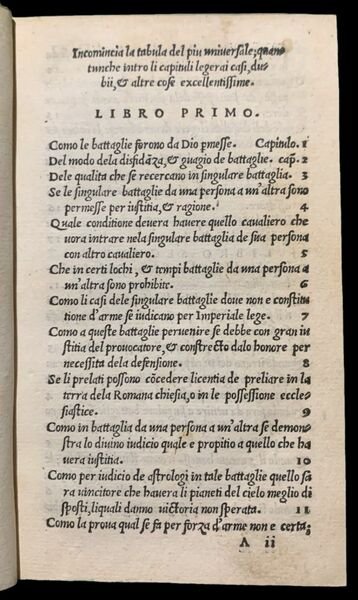 Incomincia la tabula del piu universale; quan
tunche intro li capituli legerai casi, du
bii, & altre cose excellentissime.
LIBRO PRIMO.
Como le battaglie forono da Dio pmesse. Capitulo. 1
Del modo dela disfidāza, & guagio de battaglie. cap̄. 2
Dele qualita che se recercano in singulare battaglia. 3
Se le singulare battaglie da una persona a un'altra sono
permesse per iustitia, & ragione. 4
Quale conditione devera havere quello cavaliero che
vora intrare nela singulare battaglia de sua persona
con altro cavaliero. 5
Che in certi lochi, & tempi battaglie da una persona a
un'altra sono prohibite. 6
Como li casi dele singulare battaglie doue non e constitu
tione d'arme se iudicano per Imperiale lege. 7
Como a queste battaglie peruenire se debbe con gran iu
stitia del prouocatore, & constrecto dalo honore per
necessita dela defensione. 8
Se li prelati possono cōcedere licentia de preliare in la
terra dela Romana chiesia, o in le possessione eccle-
siastice. 9
Como in battaglia da una persona a un'altra se demon
stra lo diuino iudicio quale e propitio a quello che ha
uera iustitia. 10
Como per iudicio de astrologi in tale battaglie quello sa
ra uincitore che hauera li pianeti del cielo meglio di
sposti, liquali danno uictoria non sperata. 11
Como la proua qual se fa per forza d'arme non e certa;
A ii